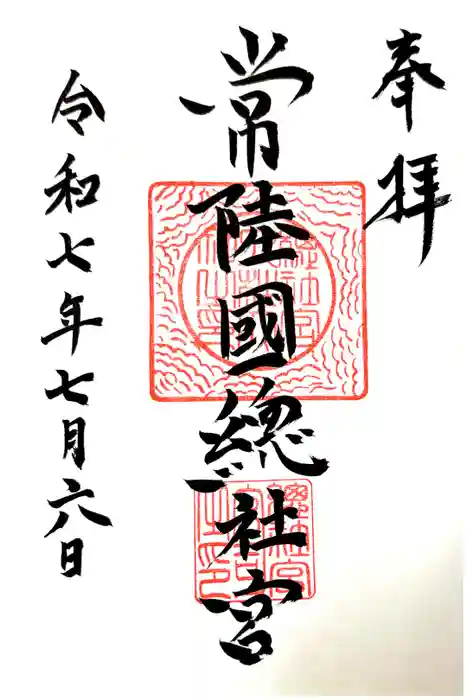 奉拝
常陸國總社宮
令和七年七月六日